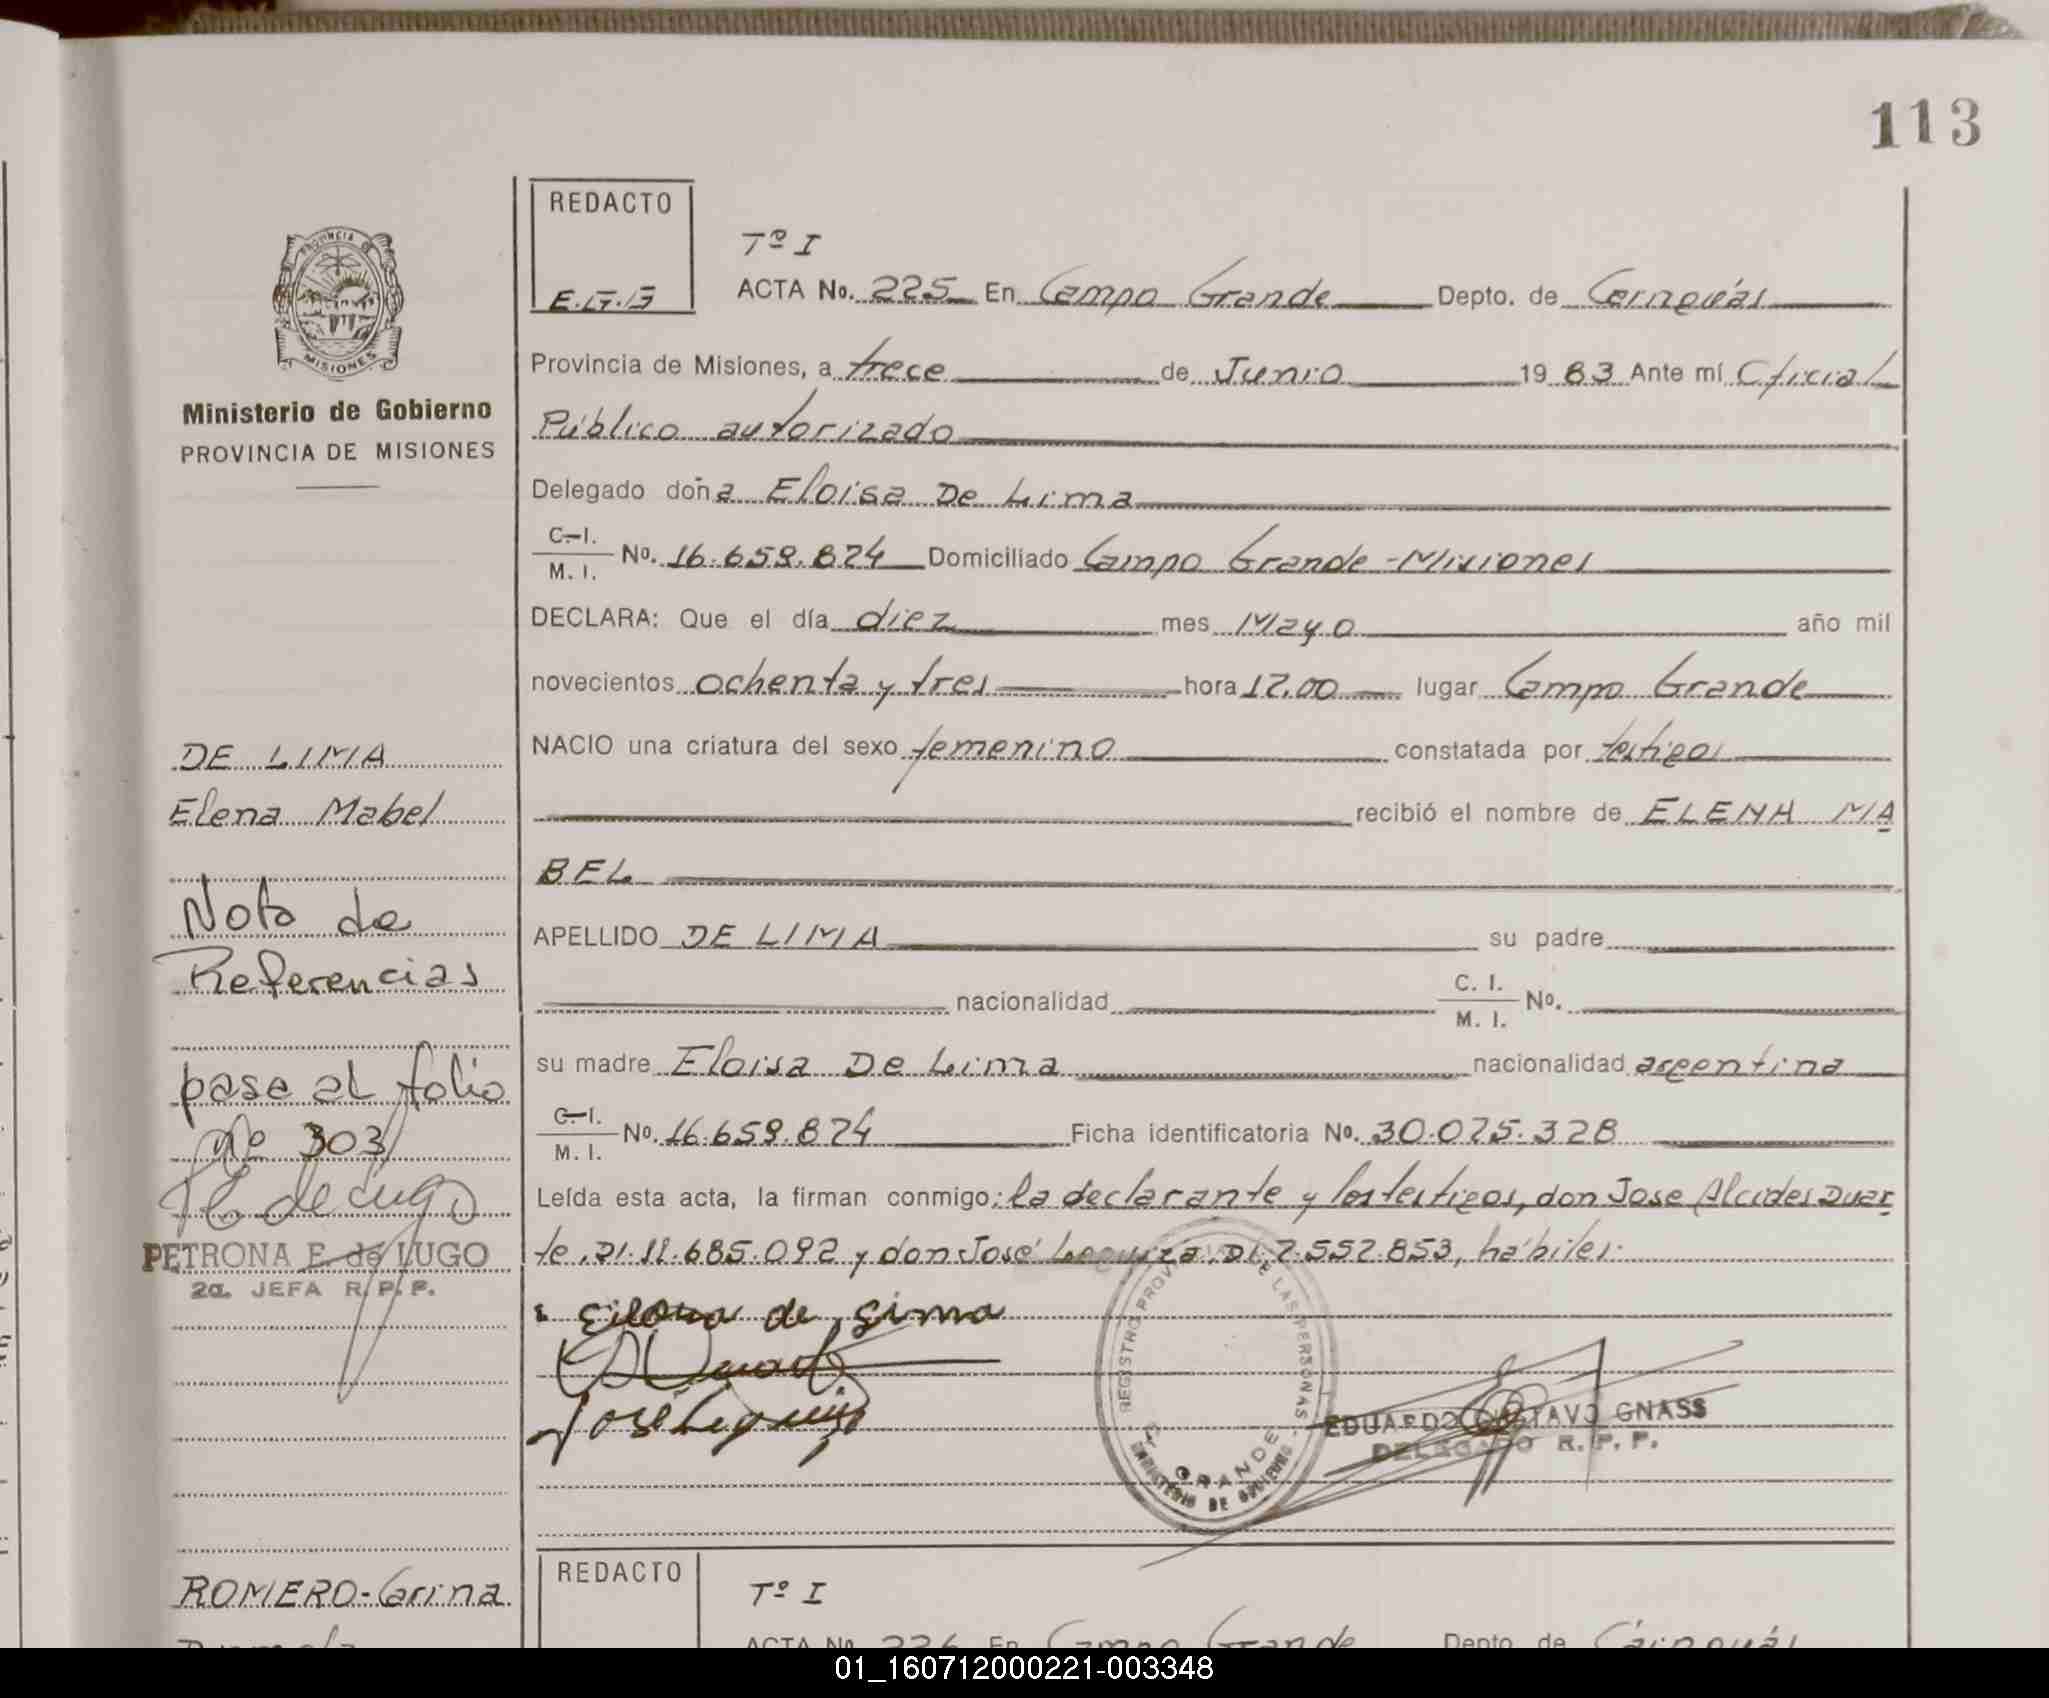 113
REDACTO
E.G.G
Tº I
ACTA No. 225 En Campo Grande Depto. de Cainguás
Provincia de Misiones, a trece de Junio 19 83 Ante mí Oficial
Público autorizado
Delegado doña Eloisa De Lima
C.I.
M. I. No. 16.659.824 Domiciliado Campo Grande-Misiones
DECLARA: Que el día diez mes Mayo año mil
novecientos ochenta y tres hora 12,00 lugar Campo Grande
NACIO una criatura del sexo femenino constatada por testigos
recibió el nombre de ELENA MA
BEL
APELLIDO DE LIMA su padre
nacionalidad C. I.
M. I. No.
su madre Eloisa De Lima nacionalidad argentina
C.I.
M. I. No. 16.659.824 Ficha identificatoria No. 30.025.328
Leída esta acta, la firman conmigo: la declarante y los testigos, don Jose Alcides Duar
te, DI. 11.685.092 y don José Leguiza, DI. 7.552.853, hábiles.
Eloisa de Lima
José Leguiza
REGISTRO PROVINCIAL DE LAS PERSONAS
GRANDE
MINISTERIO DE GOBIERNO
EDUARDO GUSTAVO GNASS
DELEGADO R. P. P.
PROVINCIA DE
MISIONES
Ministerio de Gobierno
PROVINCIA DE MISIONES
DE LIMA
Elena Mabel
Nota de
Referencias
pase al folio
nº 303
P E de Lugo
PETRONA E. de LUGO
2a. JEFA R. P. P.
ROMERO-Carina
REDACTO
Tº I
ACTA No. 226 En Campo Grande Depto. de Cainguás
01_160712000221-003348